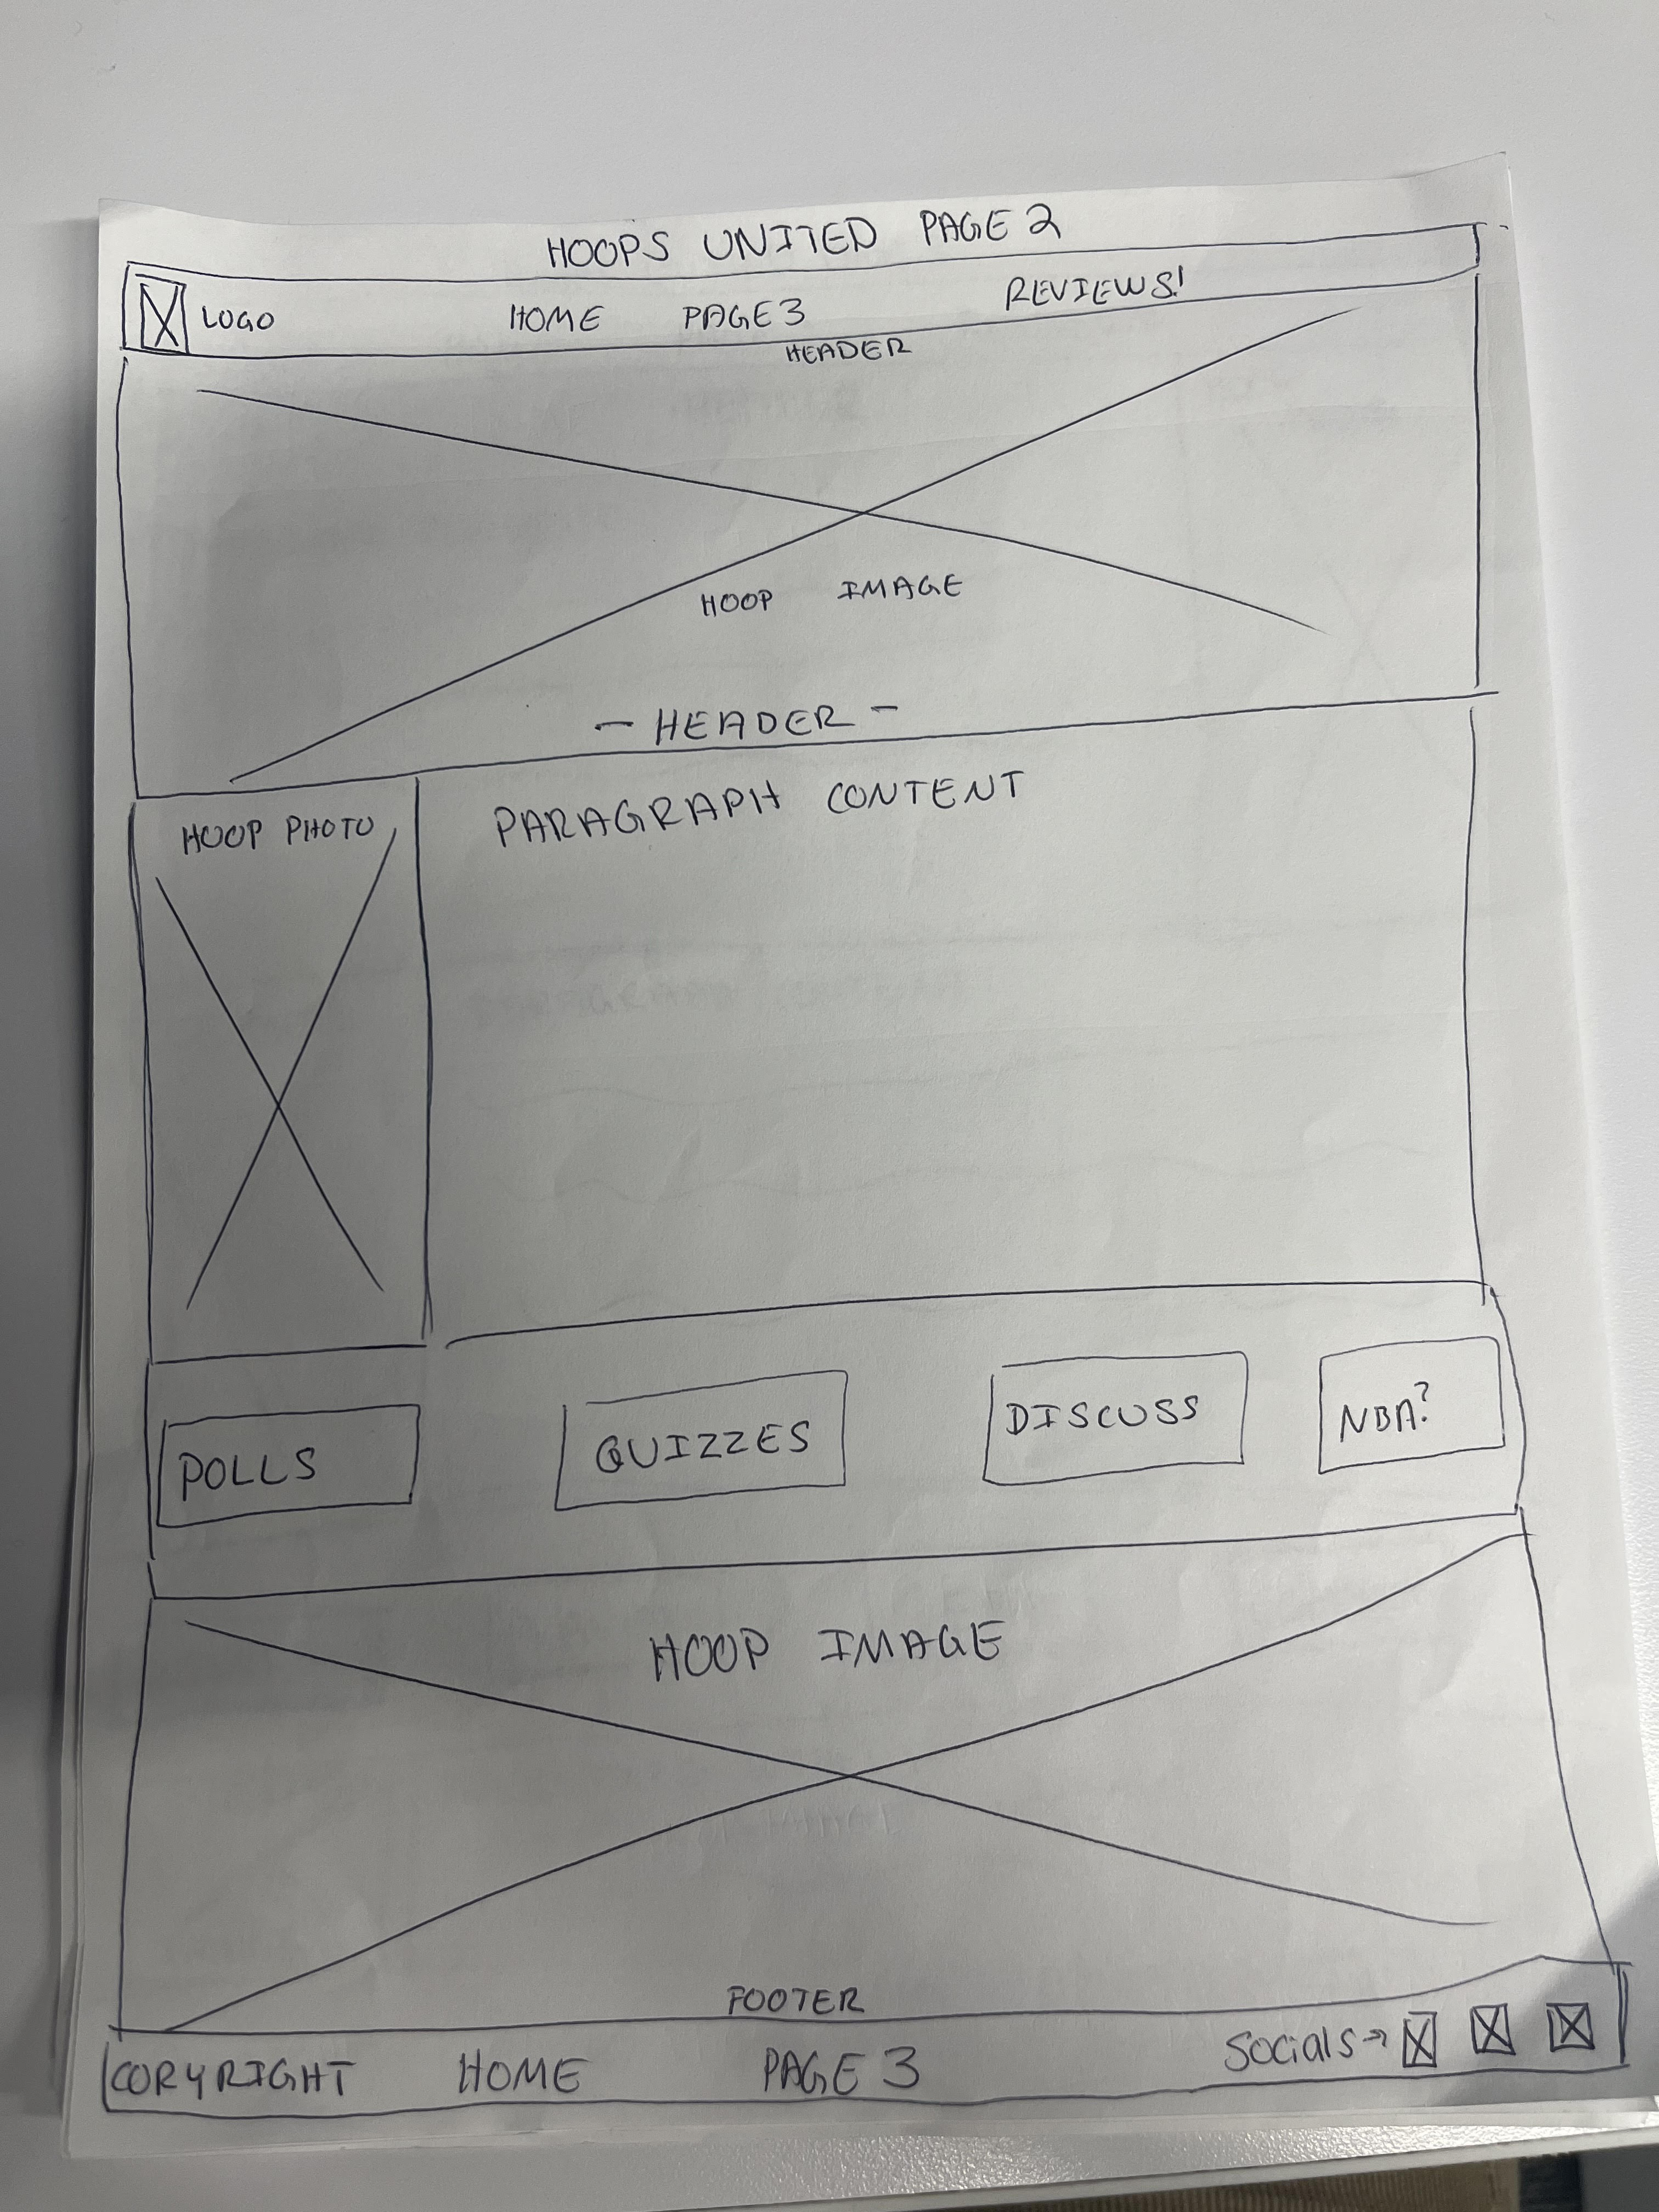 HOOPS UNITED PAGE 2
LOGO HOME PAGE 3 REVIEWS!
HEADER
HOOP IMAGE
- HEADER -
HOOP PHOTO
PARAGRAPH CONTENT
POLLS QUIZZES DISCUSS NBA?
HOOP IMAGE
FOOTER
COPYRIGHT HOME PAGE 3 SOCIALS →